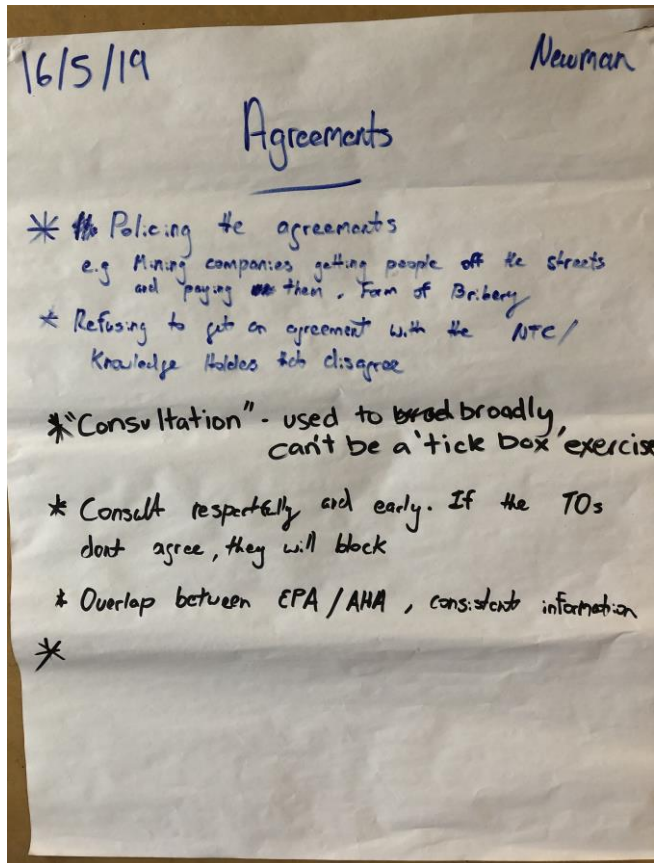 16/5/19 Newman
Agreements
* Policing the agreements
e.g Mining companies getting people off the streets
and paying them. Form of Bribery
* Refusing to get an agreement with the NTC/
Knowledge Holders disagree
* "Consultation" - used to broadly,
can't be a 'tick box' exercise
* Consult respectfully and early. If the TOs
dont agree, they will block
* Overlap between EPA/AHA, consistent information
*